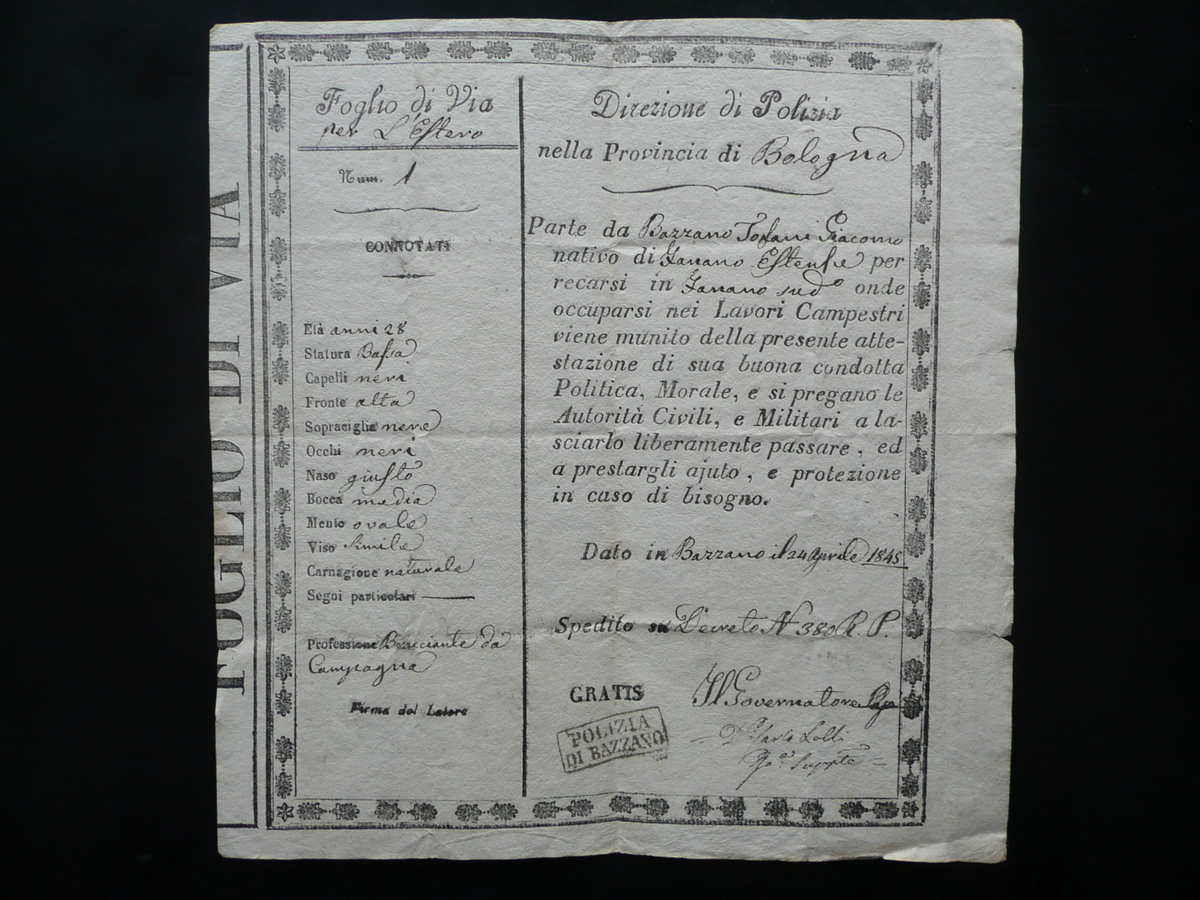 FOGLIO DI VIA
Foglio di Via
per L'Estero
Num. 1
CONNOTATI
Età anni 28
Statura Bassa
Capelli neri
Fronte alta
Sopraciglia nere
Occhi neri
Naso giusto
Bocca media
Mento ovale
Viso simile
Carnagione naturale
Segni particolari —
Professione Bracciante da
Campagna
Firma del Latore
Direzione di Polizia
nella Provincia di Bologna
Parte da Bazzano Tofani Giacomo
nativo di Fanano Estense per
recarsi in Fanano sudº onde
occuparsi nei Lavori Campestri
viene munito della presente atte-
stazione di sua buona condotta
Politica, Morale, e si pregano le
Autorità Civili, e Militari a la-
sciarlo liberamente passare, ed
a prestargli ajuto, e protezione
in caso di bisogno.
Dato in Bazzano il 24 Aprile 1845
Spedito su Decreto N 380 R. P.
GRATIS
Il Governatore
POLIZIA
DI BAZZANO
Lolli
Supplte